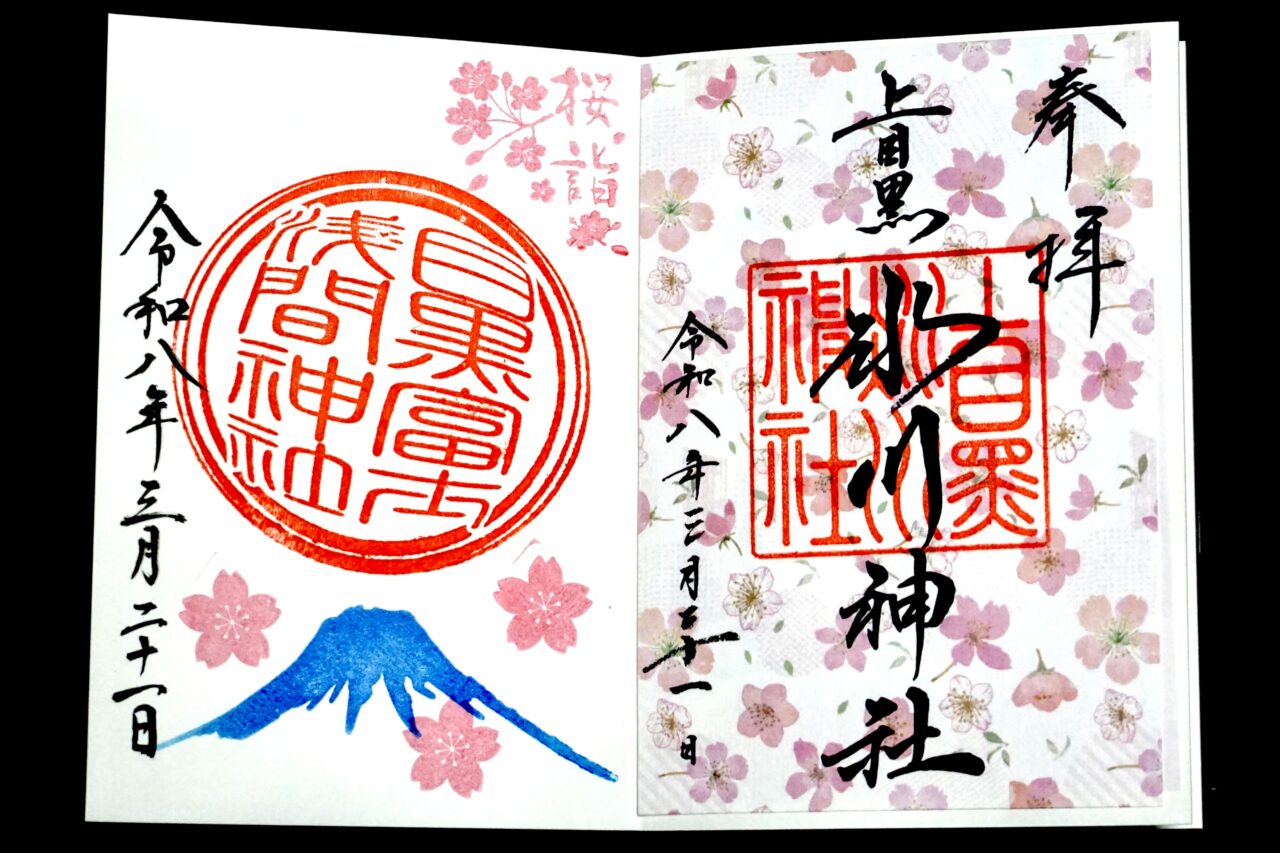 奉拝
上目黒
氷川神社
上目黒
氷川
神社
令和八年三月二十一日
桜詣
目黒富士
浅間神社
令和八年三月二十一日